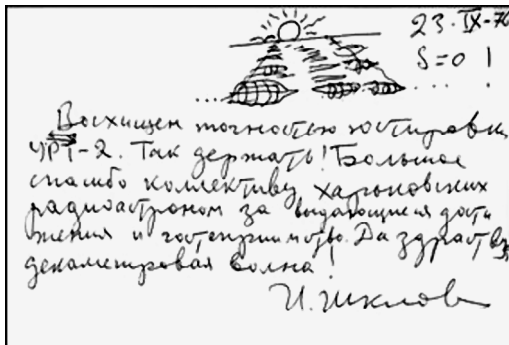 23·IX-76
S=0!
Восхищен точностью юстировки
УРТ-2. Так держать! Большое
спасибо коллективу харьковских
радиоастроном за выдающиеся дости
жения и гостеприимство. Да здравств
декаметровая волна!
И. Шклов